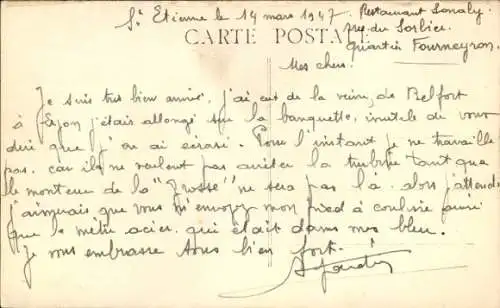 St Etienne le 14 mars 1947. Restaurant
près du Sorbier
CARTE POSTALE
quartier Fourneyron.
Mes chers.
Je suis très bien arrivé, j'ai eut de la veine, de Belfort
à Lyon j'étais allongé sur la banquette, inutile de vous
dire que j'en ai écrasé. Pour l'instant je ne travaille
pas, car ils ne veulent pas arrêter la turbine tant que
le monteur de la ne sera pas là. alors j'attends
j'aimerais que vous m'envoyez mon pied à coulisse ainsi
que le mètre acier, qui était dans mes bleu.
Je vous embrasse tous bien fort.